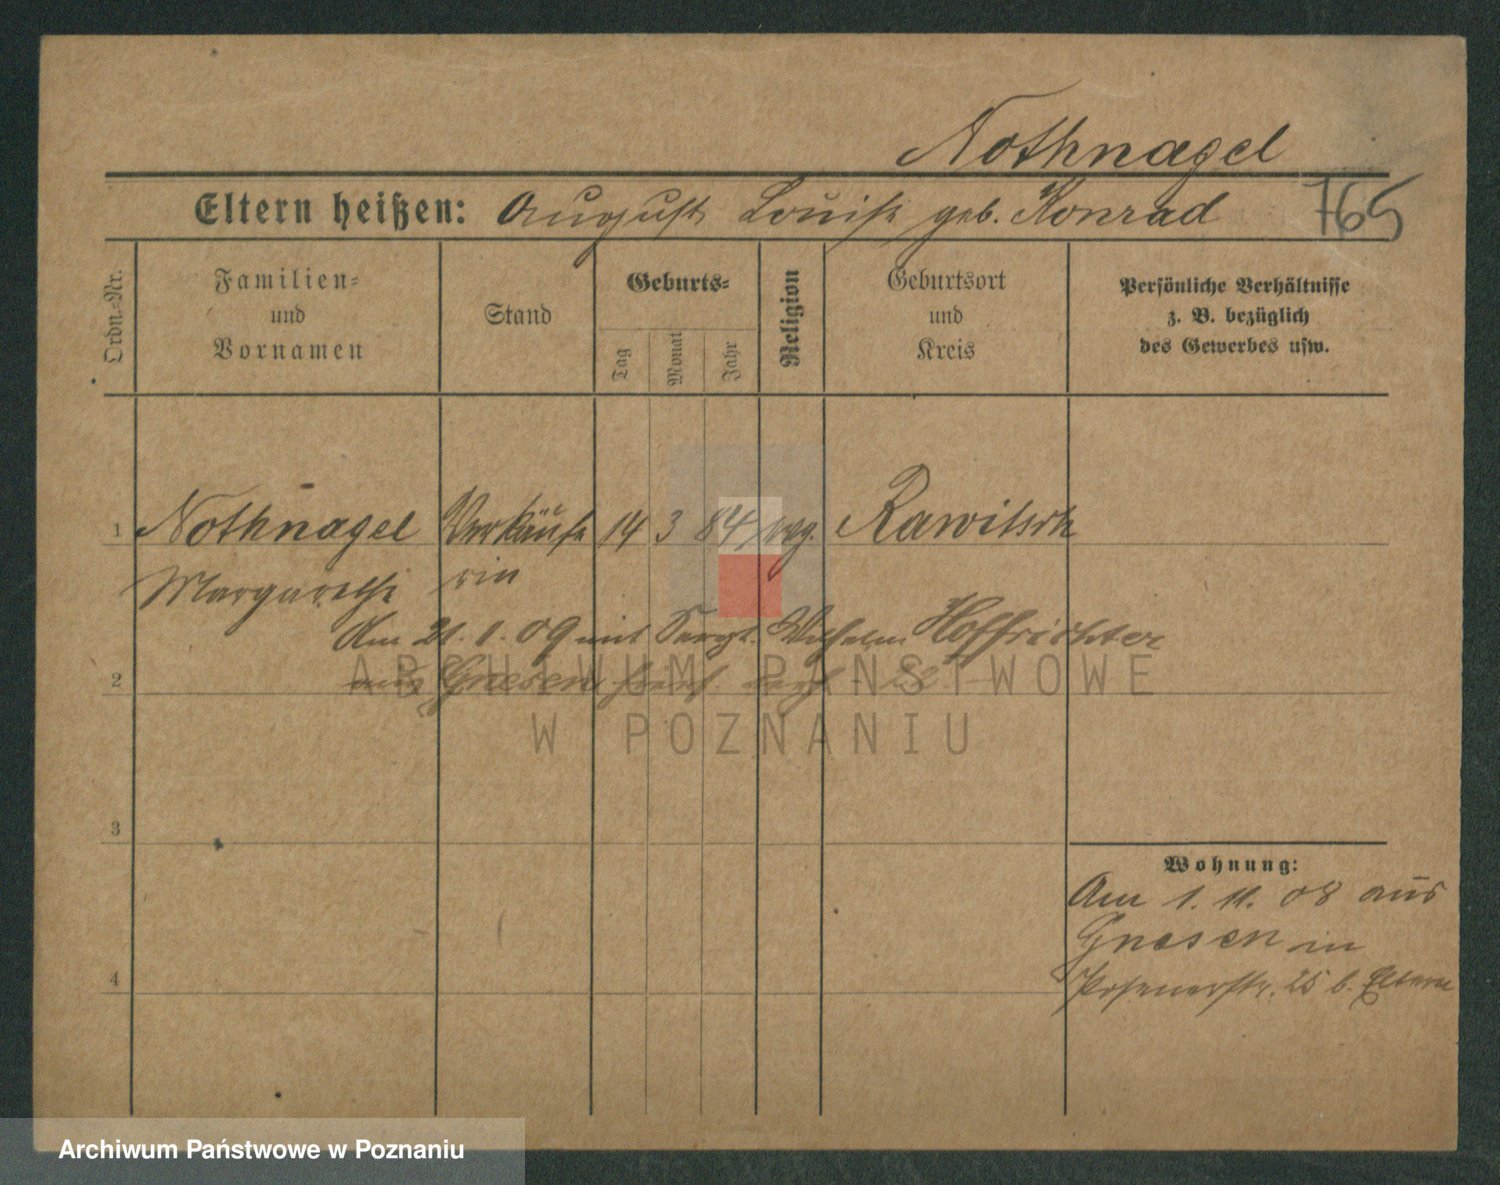 Nothnagel
Eltern heißen: August Louise geb. Konrad 765
Ordn.-Nr.
Familien-
und
Vornamen
Stand
Geburts-
Tag
Monat
Jahr
Religion
Geburtsort
und
Kreis
Persönliche Verhältnisse
z. B. bezüglich
des Gewerbes usw.
1 Nothnagel Verkäufe 14 3 84 evg. Rawitsch
Margarethe rin
Am 21. 1. 09 mit Sergt. Wilhelm Hoffrichter
2 aus Gnesen
ARCHIWUM PAŃSTWOWE
W POZNANIU
3
Wohnung:
Am 1. 11. 08 aus
Gnesen in
4 Posenerstr. 25 b. Eltern
Archiwum Państwowe w Poznaniu